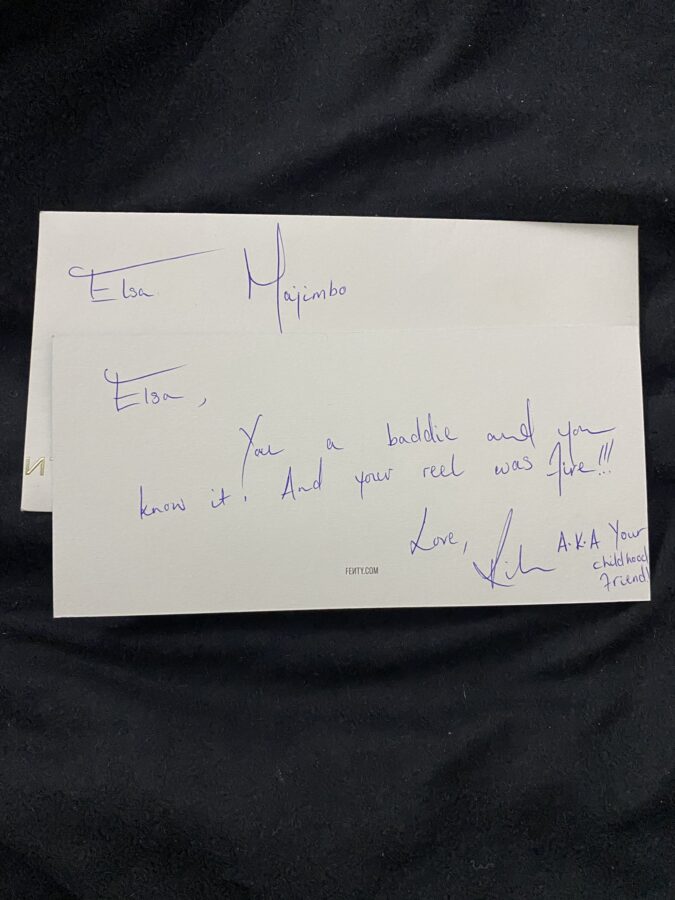 Elsa Majimbo
Elsa,
You a baddie and you
know it! And your reel was fire!!!
Love,
A.K.A Your
childhood
friend!
FENTY.COM